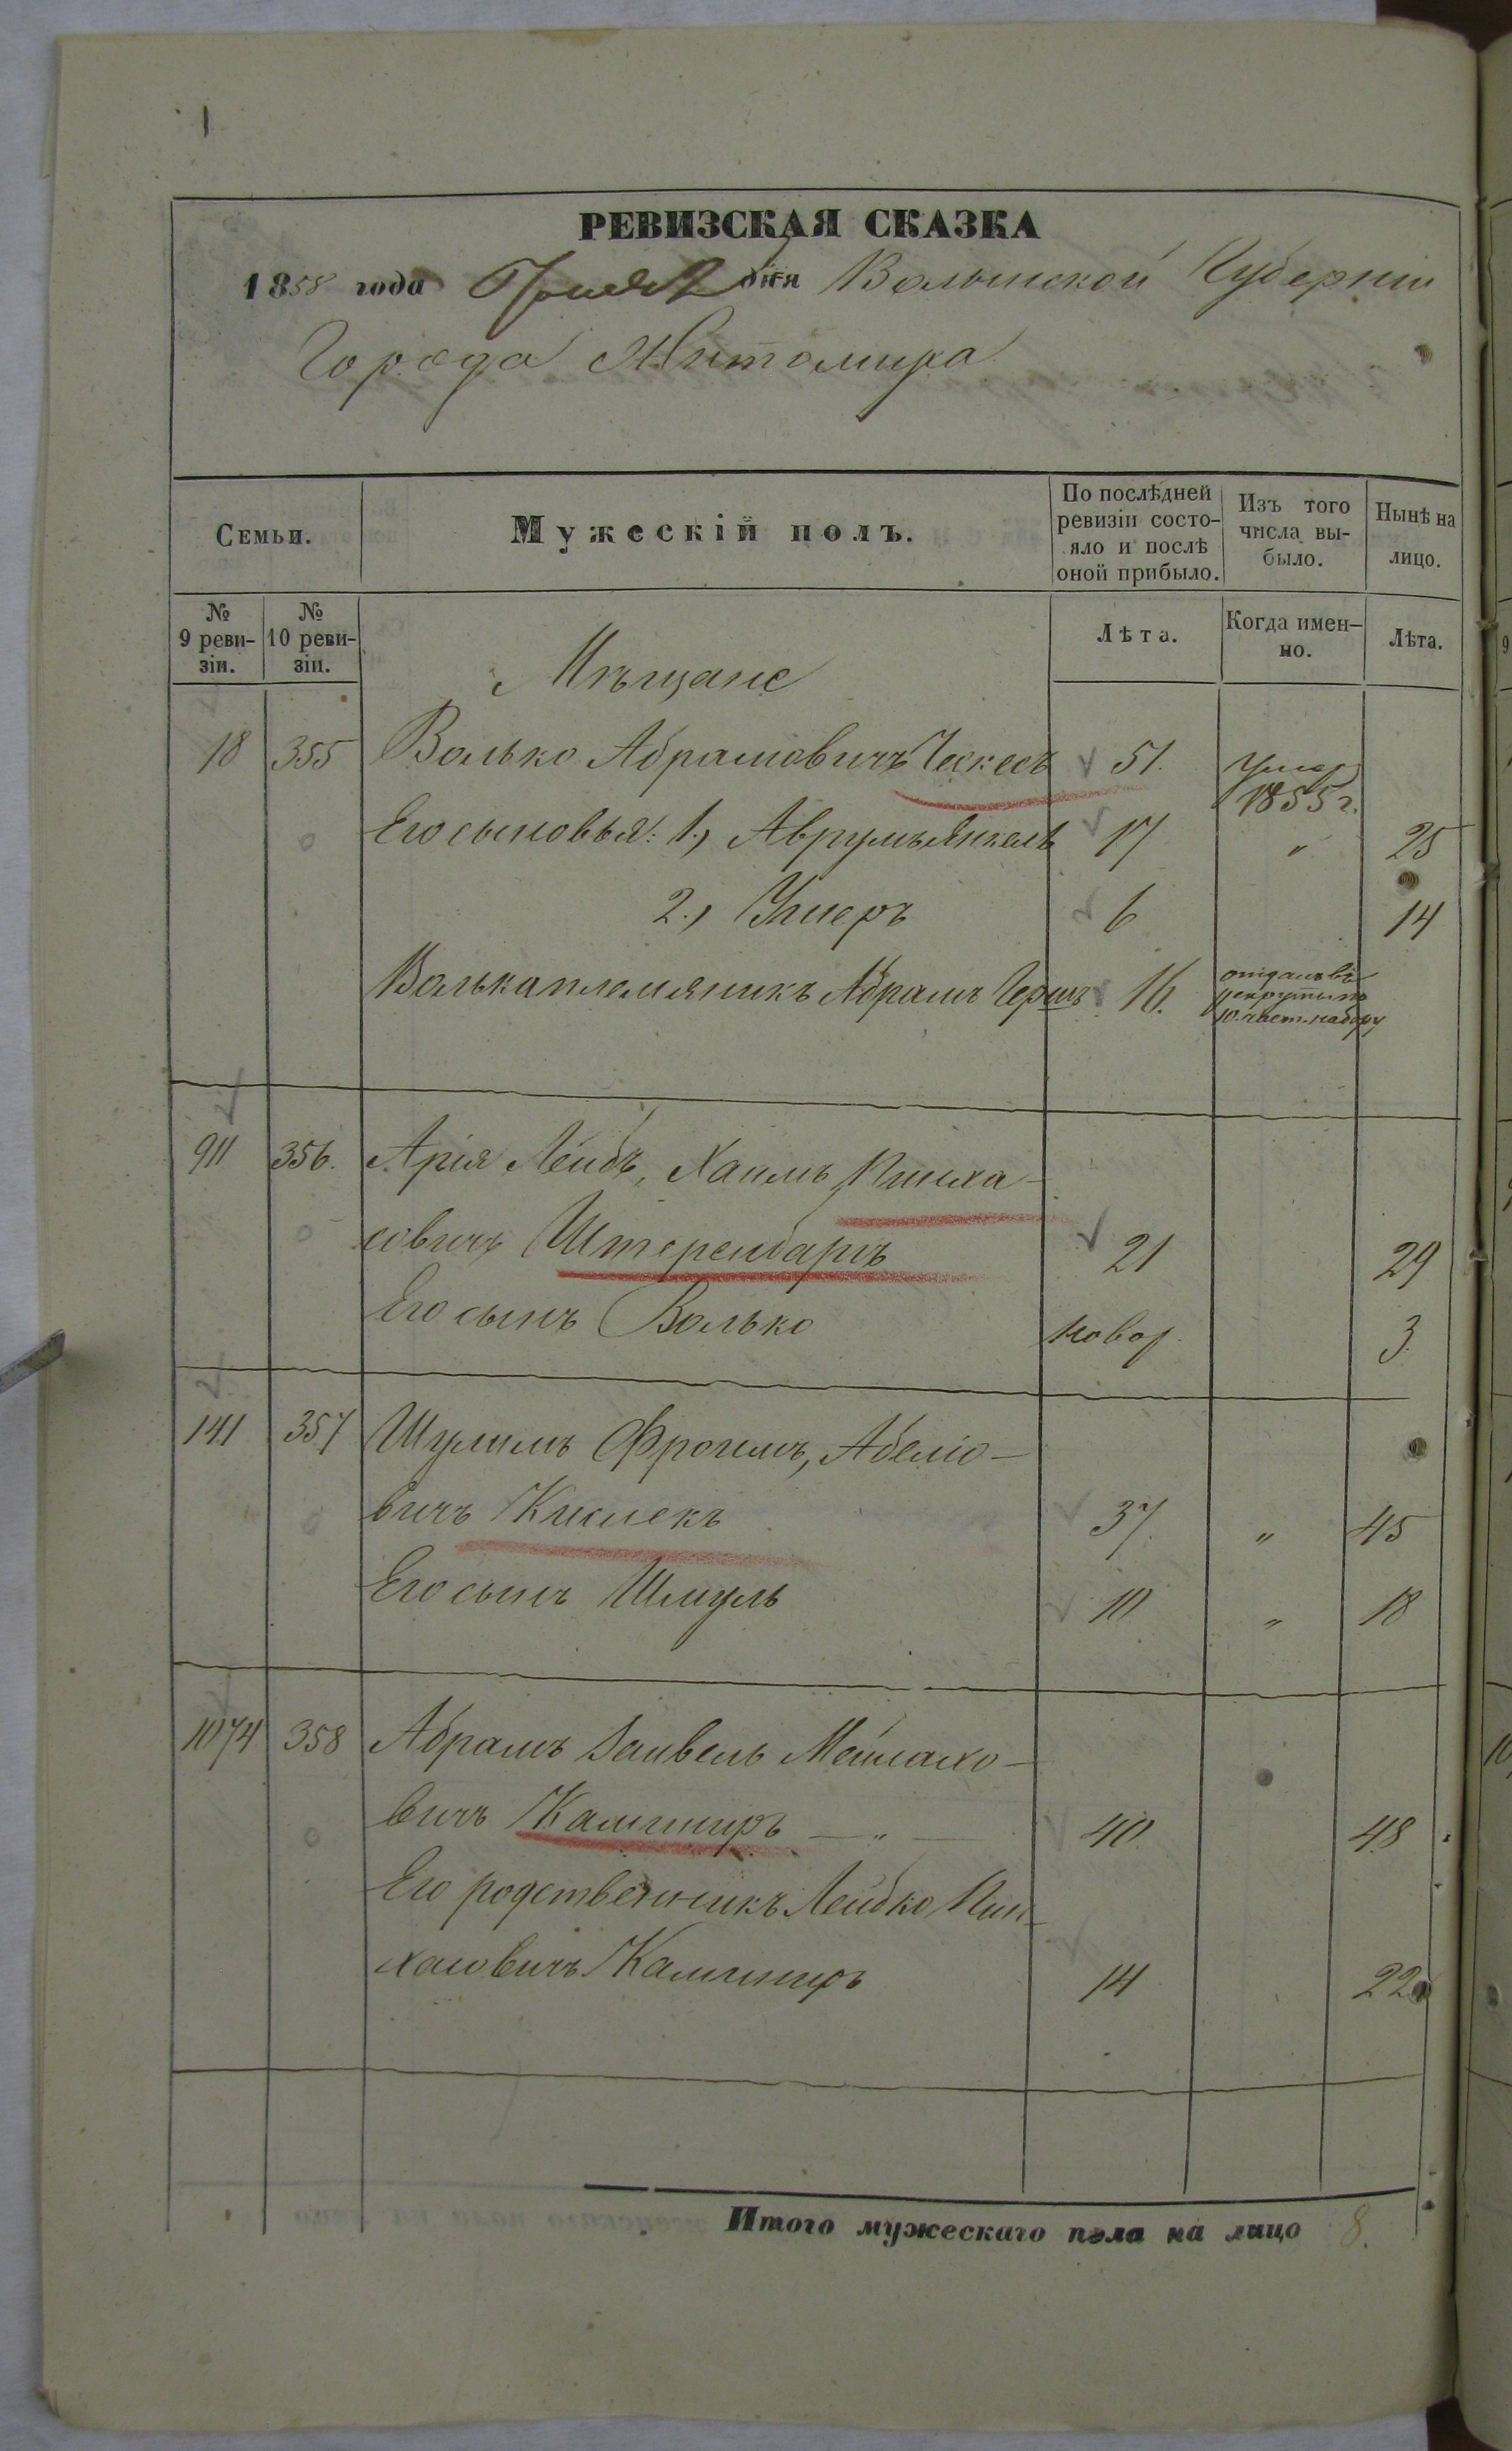 РЕВИЗСКАЯ СКАЗКА
1858 года дня Волынской Губерніи
Города Житомира
Семьи.
Мужескій полъ.
По послѣдней ревизіи состояло и послѣ оной прибыло.
Изъ того числа выбыло.
Нынѣ на лицо.
№ 9 ревизіи.
№ 10 ревизіи.
Лѣта.
Когда именно.
Лѣта.
Мѣщане
18 355 Волько Абрамовичъ 51. Умер 1855 г.
Его сыновья: 1., Аврумъ Янкель 17 " 25
2., Ушеръ 6 14
Волька племяникъ Абрамъ Гершъ 16. отданъ въ рекруты по 10. част. набору
911 356. Арія Лейбъ, Хаимъ Пинха-
совичъ 21 29
Его сынъ Волько новор. 3.
141 357 Шулимъ Фроимъ, Абеліо-
вичъ 37 " 45
Его сынъ Шмуль 10 " 18
1074 358 Абрамъ Зайвель Мейлахо-
вичъ — " — 40 48
Его родственникъ Лейбко Пин-
хасовичъ 14 22
Итого мужескаго пола на лицо 8.